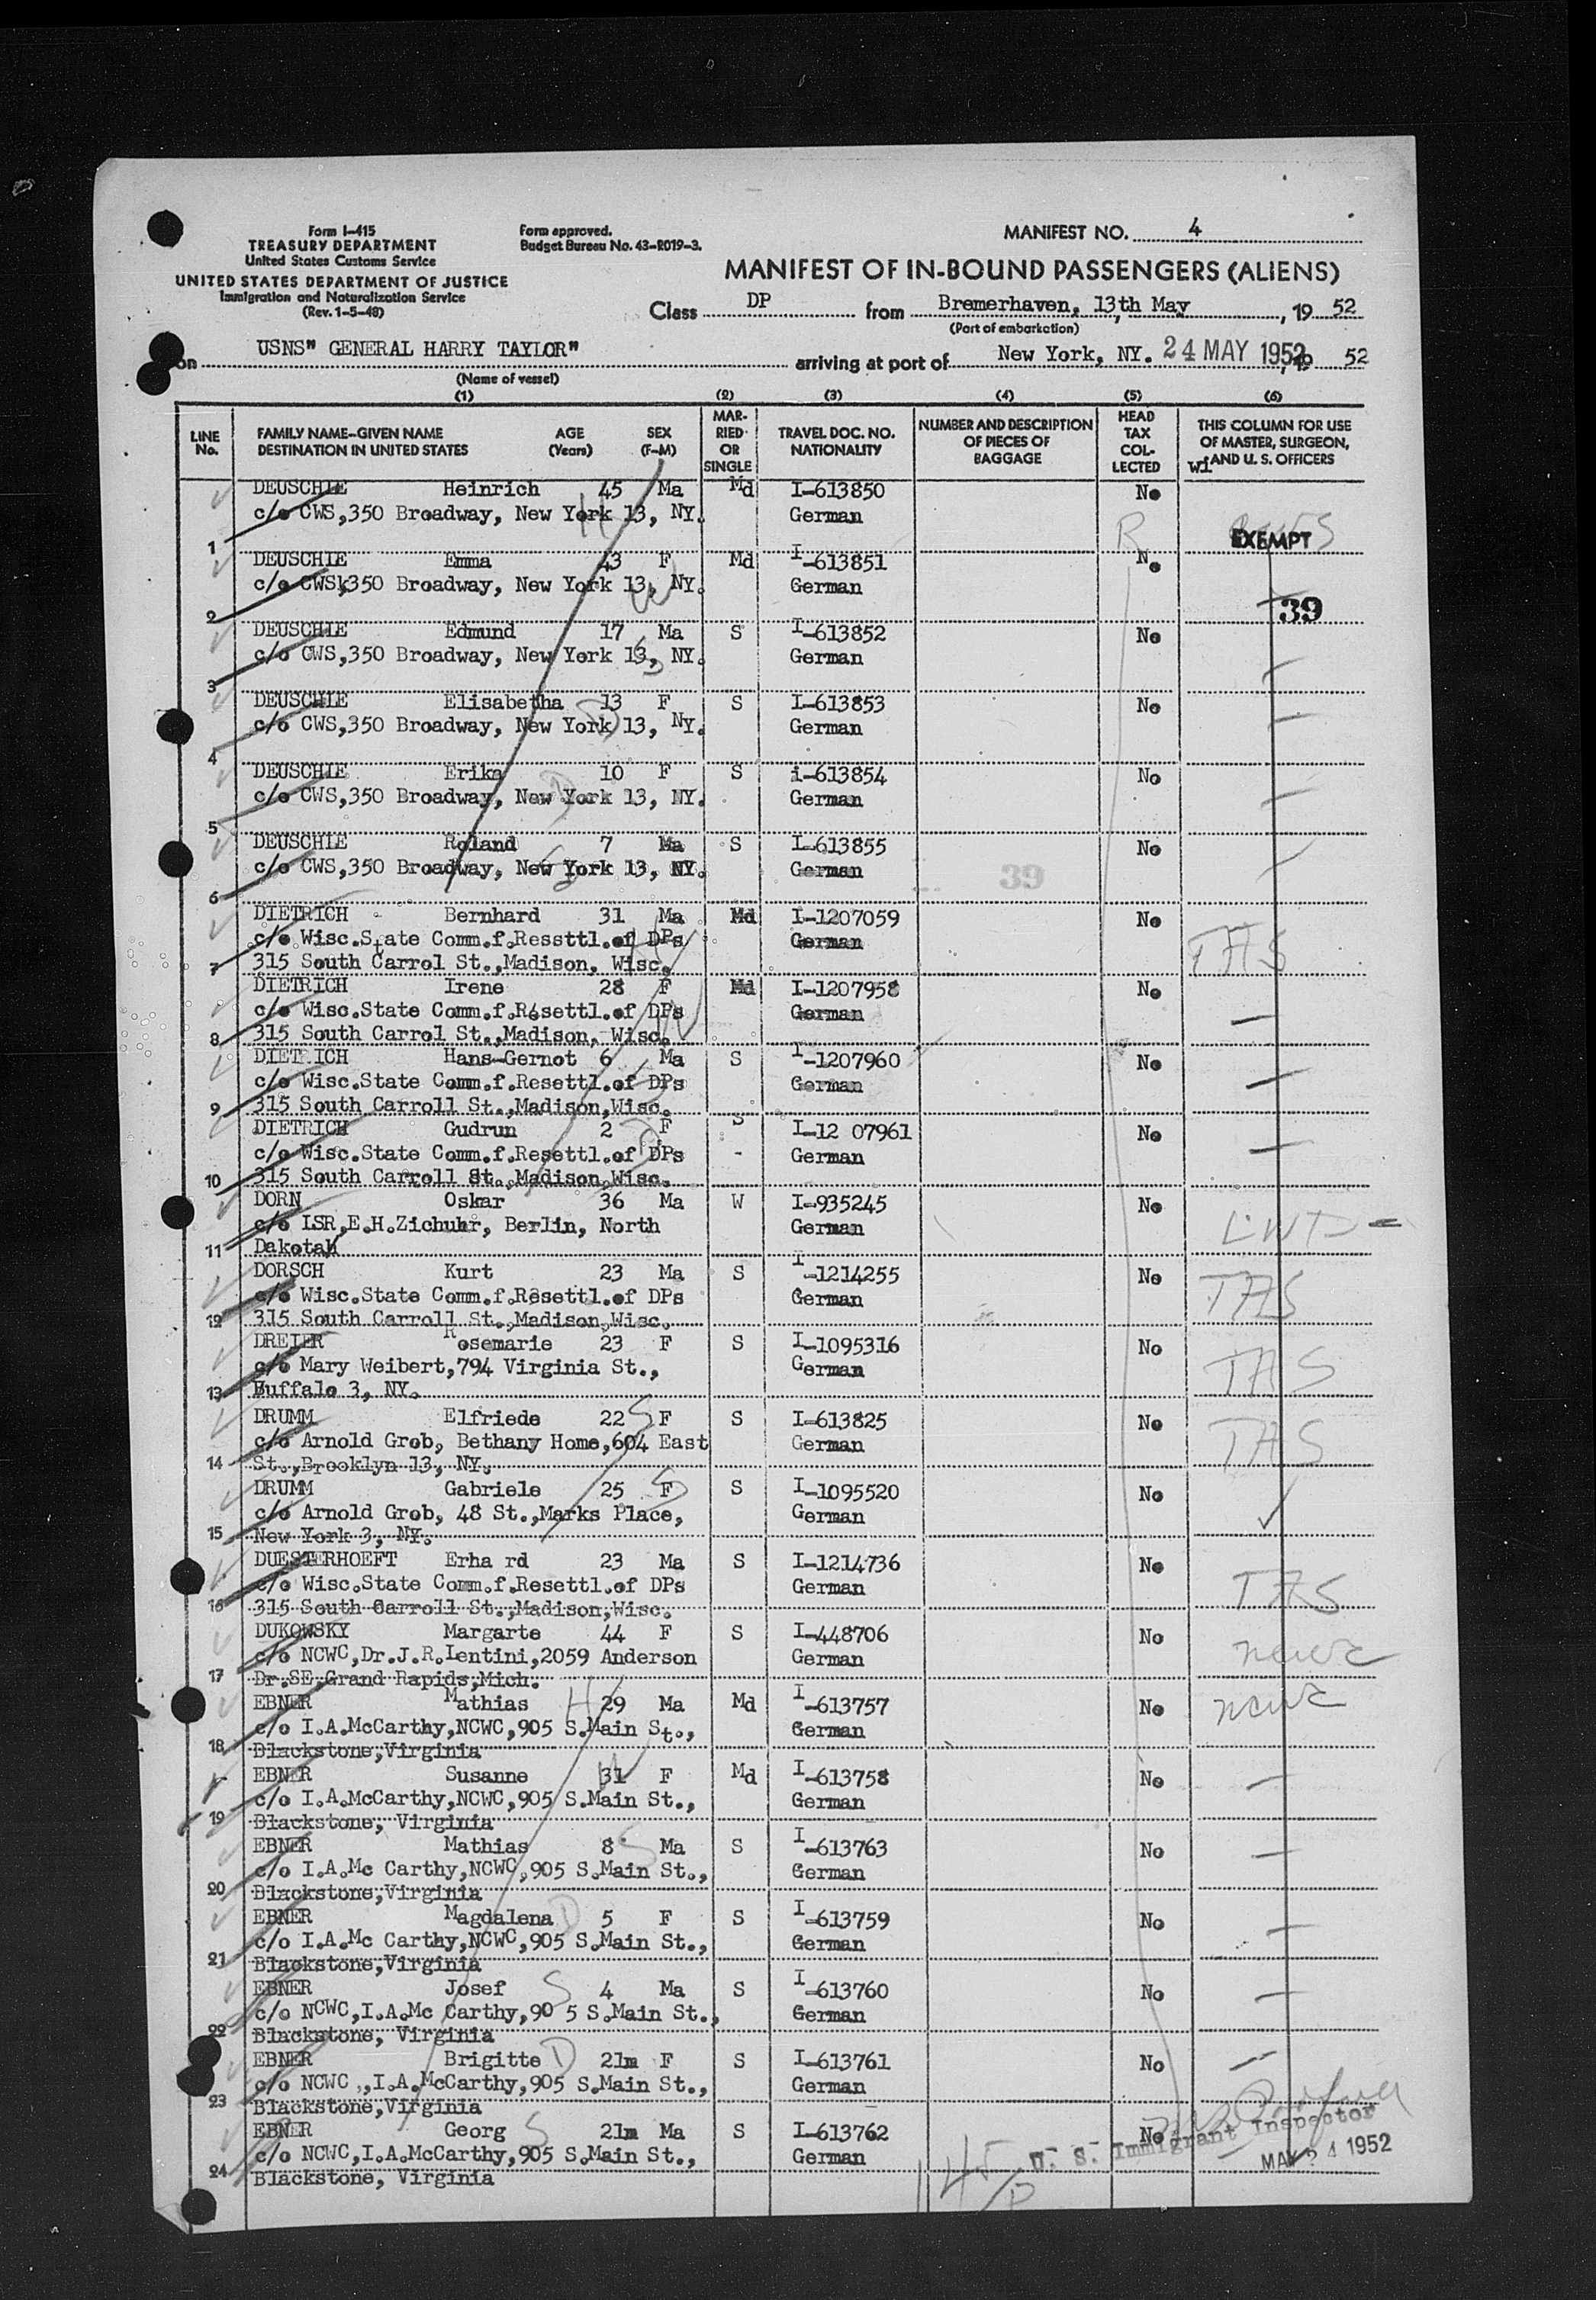 Form I-415
TREASURY DEPARTMENT
United States Customs Service
UNITED STATES DEPARTMENT OF JUSTICE
Immigration and Naturalization Service
(Rev. 1-5-48)
Form approved.
Budget Bureau No. 43-R019-3.
MANIFEST NO. 4
MANIFEST OF IN-BOUND PASSENGERS (ALIENS)
Class DP from Bremerhaven, 13th May, 19 52
(Port of embarkation)
on USNS" GENERAL HARRY TAYLOR" arriving at port of New York, NY. 24 MAY 1952, 19 52
(Name of vessel)
(1) (2) (3) (4) (5) (6)
LINE No. FAMILY NAME-GIVEN NAME DESTINATION IN UNITED STATES AGE (Years) SEX (F-M) MARRIED OR SINGLE TRAVEL DOC. NO. NATIONALITY NUMBER AND DESCRIPTION OF PIECES OF BAGGAGE HEAD TAX COLLECTED THIS COLUMN FOR USE OF MASTER, SURGEON, AND U. S. OFFICERS
DEUSCHLE Heinrich 45 Ma Md I-613850 No
c/o CWS,350 Broadway, New York 13, NY. German
1 R EXEMPT
DEUSCHLE Emma 43 F Md I-613851 No
c/o CWSk350 Broadway, New York 13, NY. German
2 39
DEUSCHLE Edmund 17 Ma S I-613852 No
c/o CWS,350 Broadway, New York 13, NY. German
3
DEUSCHLE Elisabetha 13 F S I-613853 No
c/o CWS,350 Broadway, New York 13, NY. German
4
DEUSCHLE Erika 10 F S i-613854 No
c/o CWS,350 Broadway, New York 13, NY. German
5
DEUSCHLE Roland 7 Ma S I-613855 No
c/o CWS,350 Broadway, New York 13, NY. German 39
6
DIETRICH Bernhard 31 Ma Md I-1207059 No
c/o Wisc.State Comm.f.Ressttl.of DPs German TAS
7 315 South Carrol St.,Madison, Wisc.
DIETRICH Irene 28 F Md I-1207958 No
c/o Wisc.State Comm.f.Resettl.of DPs German
8 315 South Carrol St.,Madison, Wisc.
DIETRICH Hans-Gernot 6 Ma S I-1207960 No
c/o Wisc.State Comm.f.Resettl.of DPs German
9 315 South Carroll St.,Madison,Wisc.
DIETRICH Gudrun 2 F S I-12 07961 No
c/o Wisc.State Comm.f.Resettl.of DPs - German
10 315 South Carroll St.,Madison,Wisc.
DORN Oskar 36 Ma W I-935245 No
c/o ISR,E.H.Zichuhr, Berlin, North German LWF
11 Dakotah
DORSCH Kurt 23 Ma S I-1214255 No
c/o Wisc.State Comm.f.Resettl.of DPs German TAS
12 315 South Carroll St.,Madison,Wisc.
DREIER Rosemarie 23 F S I-1095316 No
c/o Mary Weibert,794 Virginia St., German TAS
13 Buffalo 3, NY.
DRUMM Elfriede 22 S F S I-613825 No
c/o Arnold Grob, Bethany Home,604 East German TAS
14 St.,Brooklyn 13, NY.
DRUMM Gabriele 25 F S S I-1095520 No
c/o Arnold Grob, 48 St.,Marks Place, German
15 New York 3, NY.
DUESTERHOEFT Erha rd 23 Ma S I-1214736 No
c/o Wisc.State Comm.f.Resettl.of DPs German TAS
16 315 South Carroll St.,Madison,Wisc.
DUKOWSKY Margarte 44 F S I-448706 No
c/o NCWC,Dr.J.R.Lentini,2059 Anderson German ncwc
17 Dr.SE,Grand Rapids,Mich.
EBNER Mathias H 29 Ma Md I-613757 No ncwc
c/o I.A.McCarthy,NCWC,905 S.Main St., German
18 Blackstone,Virginia
EBNER Susanne 31 W F Md I-613758 No
c/o I.A.McCarthy,NCWC,905 S.Main St., German
19 Blackstone, Virginia
EBNER Mathias 8 S Ma S I-613763 No
c/o I.A.Mc Carthy,NCWC,905 S.Main St., German
20 Blackstone,Virginia
EBNER Magdalena D 5 F S I-613759 No
c/o I.A.Mc Carthy,NCWC,905 S.Main St., German
21 Blackstone,Virginia
EBNER Josef S 4 Ma S I-613760 No
c/o NCWC,I.A.Mc Carthy,90 5 S.Main St., German
22 Blackstone, Virginia
EBNER Brigitte D 21m F S I-613761 No
c/o NCWC ,,I.A.McCarthy,905 S.Main St., German
23 Blackstone,Virginia
EBNER Georg S 21m Ma S I-613762 No
c/o NCWC,I.A.McCarthy,905 S.Main St., German U. S. Immigrant Inspector
24 Blackstone, Virginia MAY 24 1952